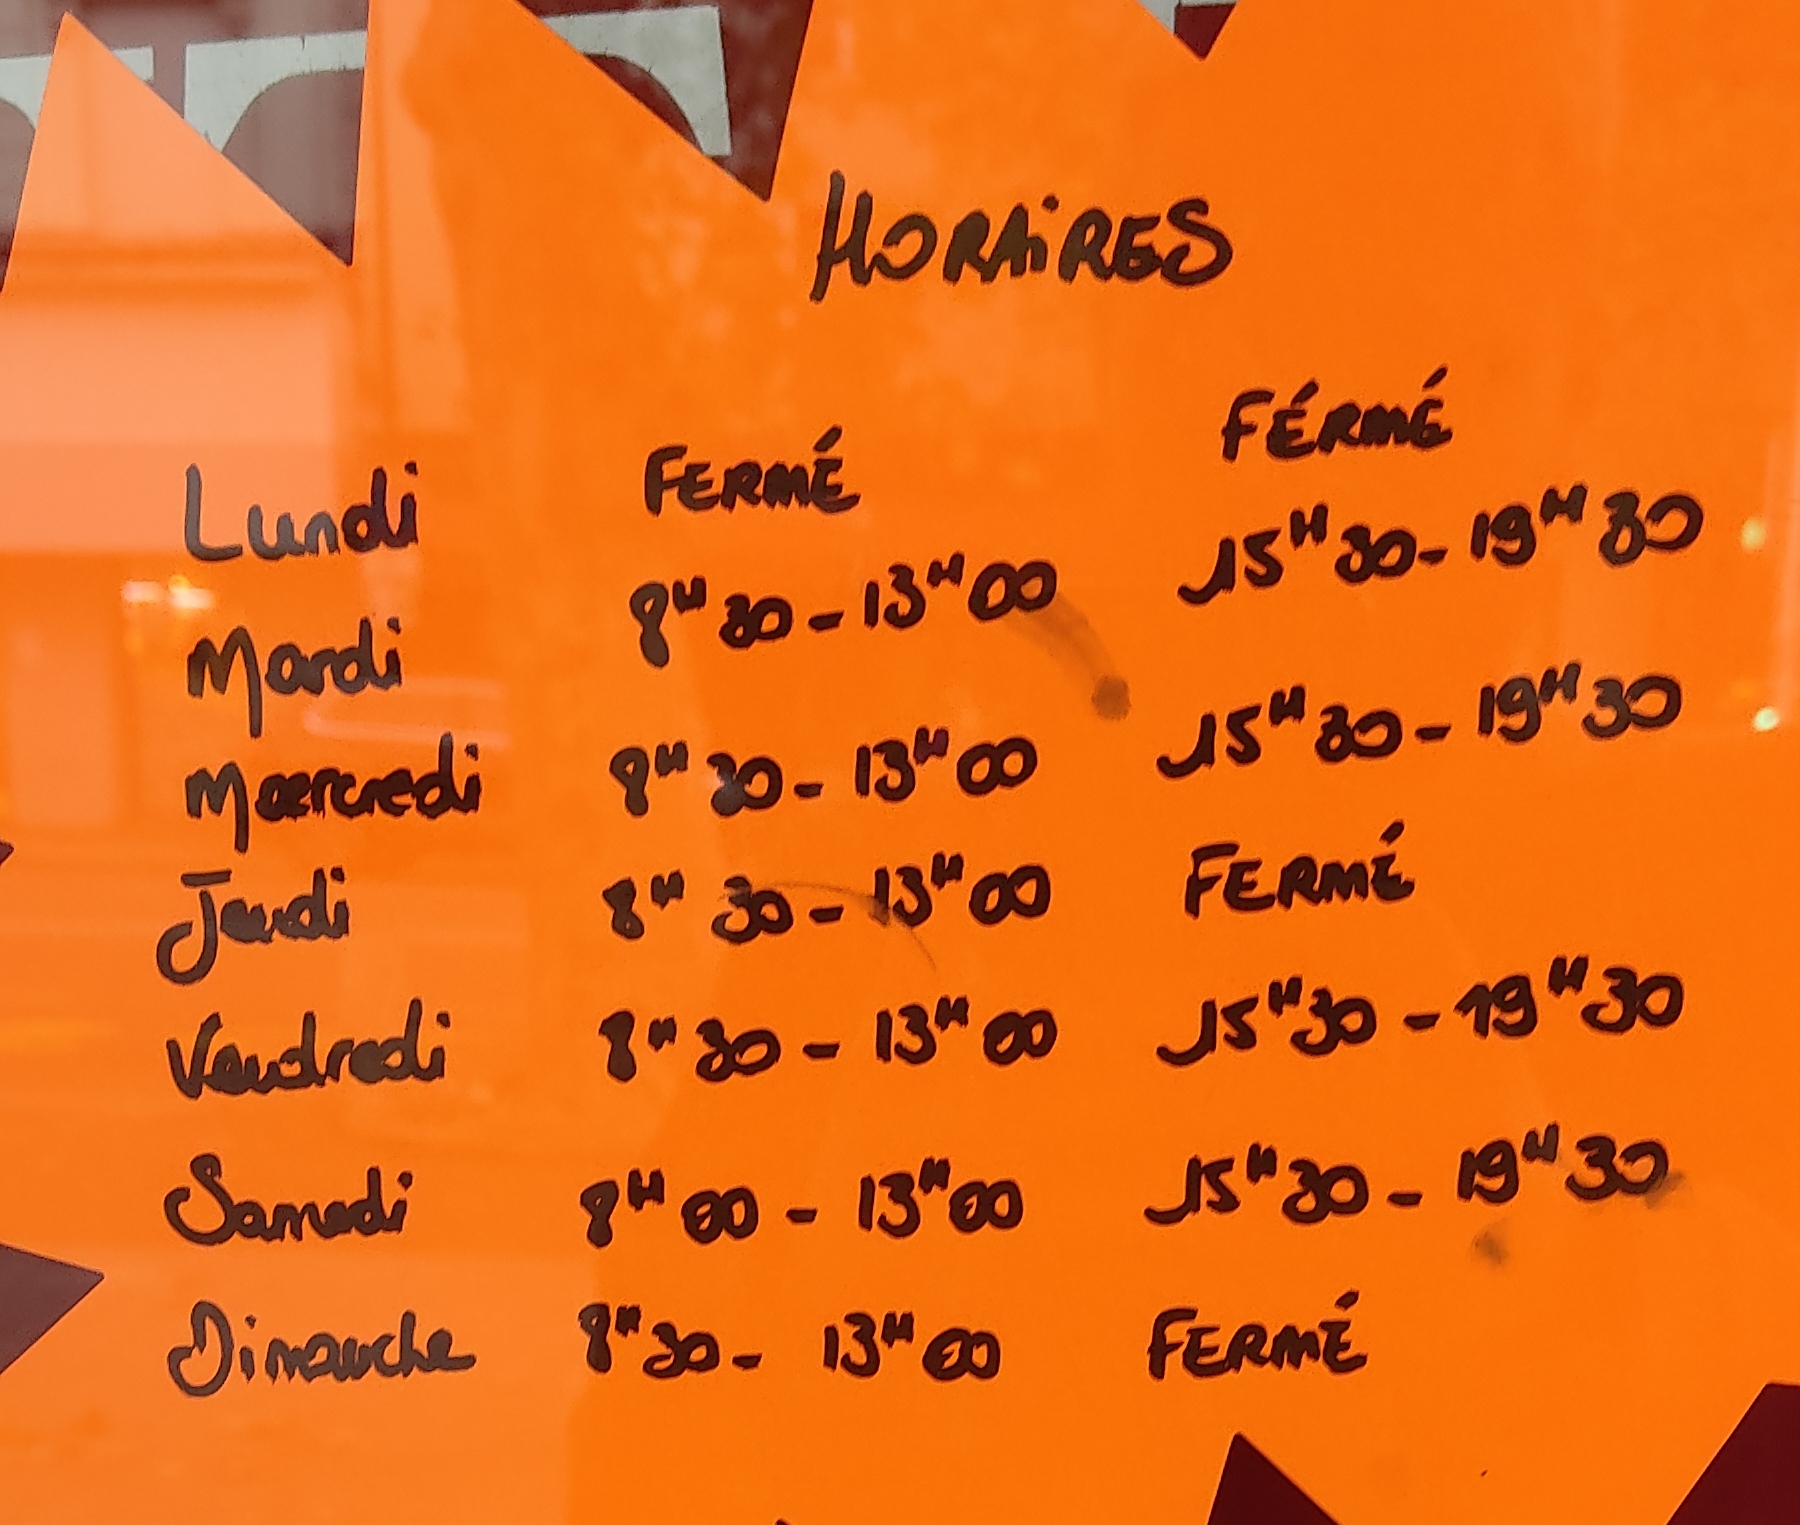 HORAiRES
Lundi FERMÉ FÉRMÉ
Mardi 8H30 - 13H00 15H30 - 19H30
Mercredi 8H30 - 13H00 15H30 - 19H30
Jeudi 8H30 - 13H00 FERMÉ
Vendredi 8H30 - 13H00 15H30 - 19H30
Samedi 8H00 - 13H00 15H30 - 19H30
Dimanche 8H30 - 13H00 FERMÉ